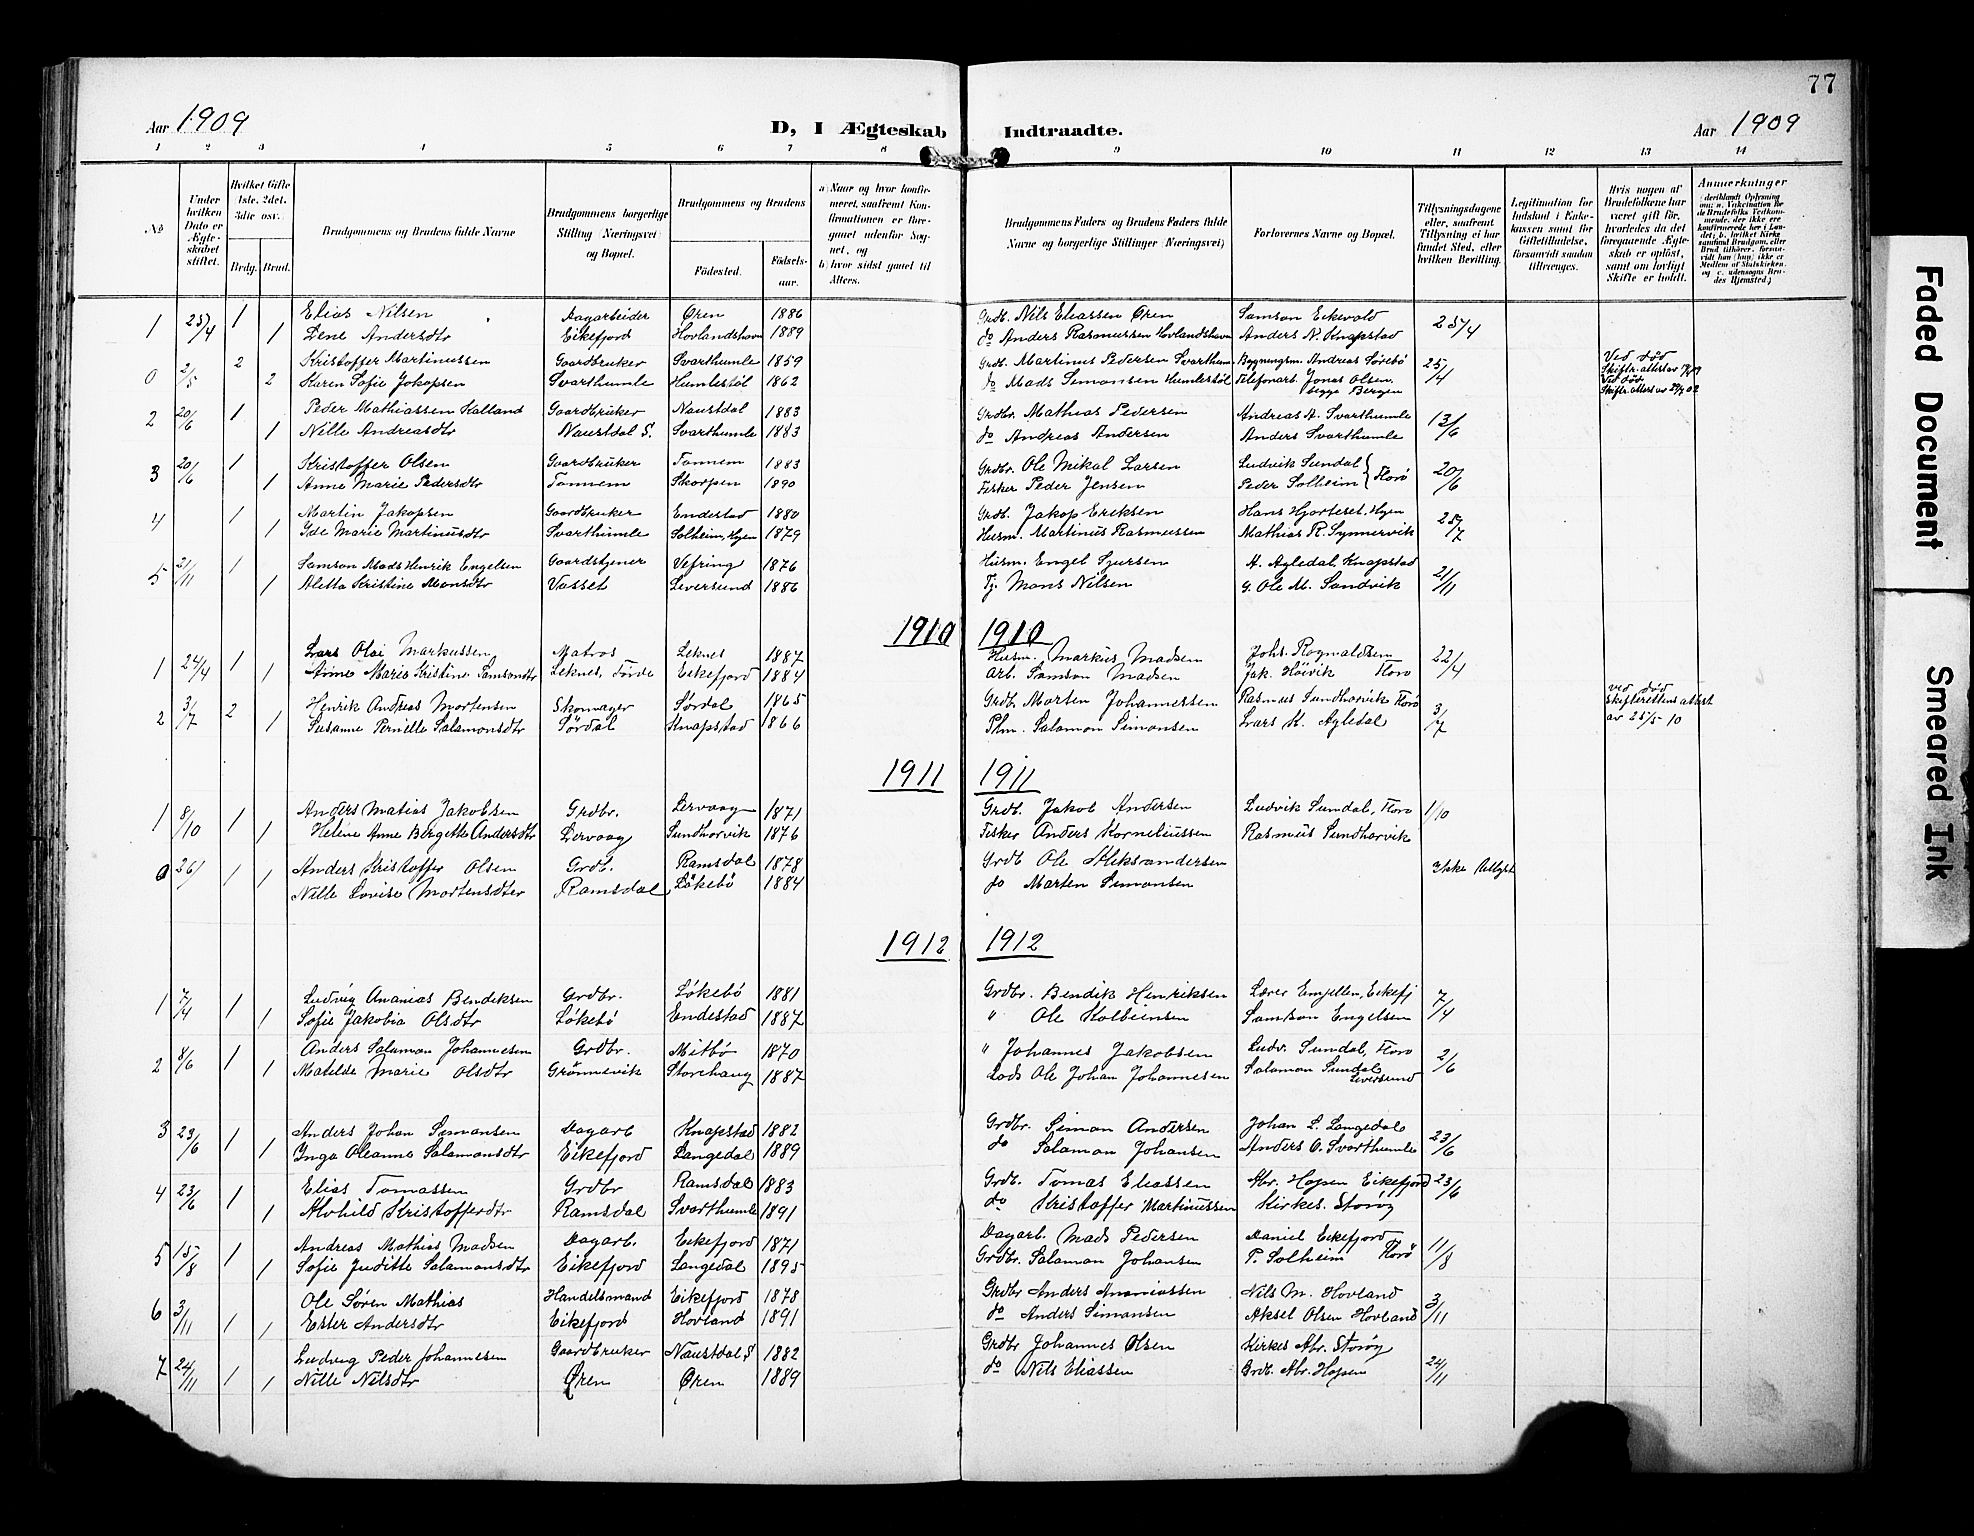 77
Aar 1909 D, I Ægteskab Indtraadte. Aar 1909
1 2 3 4 5 6 7 8 9 10 11 12 13 14
No
Under hvilken Dato er Ægteskabet stiftet.
Hvilket Gifte 1ste, 2det, 3die osv.
Brdg. Brud.
Brudgommens og Brudens fulde Navne
Brudgommens borgerlige Stilling (Næringsvei) og Bopæl.
Brudgommens og Brudens
Fødested. Fødselsaar.
a) Naar og hvor konfirmeret, saafremt Konfirmationen er foregaaet udenfor Sognet, og
b) hvor sidst gaaet til Alters.
Brudgommens Faders og Brudens Faders fulde Navne og borgerlige Stillinger (Næringsvei)
Forlovernes Navne og Bopæl.
Tillysningsdagene eller, saafremt Tillysning ei har fundet Sted, efter hvilken Bevilling.
Legitimation for Indskud i Enkekassen samt for Giftetilladelse, forsaavidt saadan tiltrænges.
Hvis nogen af Brudefolkene har været gift før, hvorledes da det foregaaende Ægteskab er opløst, samt om lovligt Skifte er holdt.
Anmerkninger
1 25/4 1 Elias Nilsen Dagarbeider Øren 1886 Grdb. Nils Eliassen Øren Samson Eikevold 25/4
1 Lene Andersdtr Eikefjord Hovlandshavn 1889 do Anders Rasmussen Hovlandshavn Anders N. Knapstad
0 2/5 2 Kristoffer Martinussen Gaardbruker Svarthumle 1859 Grdb. Martinus Pedersen Svarthum. Bygningsm. Andreas Sørebø 25/4 Ved død
2 Karen Sofie Jakopsen Svarthumle Humlestøl 1862 do Mads Simonsen Humlestøl Telefonarb. Jonas Olsen begge Bergen Ved død
2 20/6 1 Peder Mathiassen Kalland Gaardbruker Naustdal 1883 Grdbr. Mathias Pedersen Andreas A. Svarthumle 13/6
1 Nille Andreasdtr Naustdal S. Svarthumle 1883 do Andreas Andersen Anders Svarthumle
3 20/6 1 Kristoffer Olsen Gaardbruker Tonnem 1883 Grdbr. Ole Mikal Larsen Ludvik Sundal 20/6
1 Anne Marie Pedersdtr Tonnem Skorpen 1890 Fisker Peder Jensen Peder Solheim } Florø
4 1 Martin Jakopsen Gaardbruker Endestad 1880 Grdb. Jakop Eriksen Hans Hjorteset, Hyen 25/7
1 Ide Marie Martinusdtr Svarthumle Solheim, Hyen 1879 Husm. Martinus Rasmussen Mathias R. Synnervik
5 21/11 1 Samson Mads Henrik Engelsen Gaardstjener Vefring 1876 Husm. Engel Sjursen A. Ayledal Knapstad 21/11
1 Aletta Kristine Monsdtr Vasset Leversund 1886 Tj. Mons Nilsen G. Ole M. Sandvik
1910 1910
1 24/4 1 Lars Olai Markussen Matros Leknes 1887 Husm. Markus Madsen Johs. Rognaldsen 22/4
1 Anne Marie Kristine Samsondtr Leknes, Førde Eikefjord 1884 Arb. Samson Madsen Jak. Höivik Florø
2 3/7 2 Henrik Andreas Mortensen Skomager Sørdal 1865 Grdb. Morten Johannessen Rasmus Sundhorvik Florø 3/7 ved død Skifterettens attest
1 Susanne Pernille Salamonsdtr Sørdal Knapstad 1866 Plm. Salamon Simonsen Lars K. Ayledal av 25/5-10
1911 1911
1 8/10 1 Anders Matias Jakobsen Grdbr. Lervaag 1871 Grdb. Jakob Andersen Ludvik Sundal, Florø 1/10
1 Heline Anne Bergitte Andersdtr Lervaag Sundhorvik 1876 Fisker Anders Korneliussen Rasmus Sundhorvik
0 26/ 1 1 Anders Kristoffer Olsen Grdb. Ramsdal 1878 Grdb Ole Aleksandersen Ikke utlyst
Nille Lovise Mortensdter Ramsdal Løkebø 1884 do Morten Simonsen
1912 1912
1 7/4 1 Ludvig Ananias Bendiksen Grdbr. Løkebø 1881 Grdbr. Bendik Henriksen Lærer Engellen, Eikefj 7/4
1 Sofie Jakobia Olsdtr Løkebø Endestad 1887 " Ole Kolbeinsen Samson Engelsen
2 8/6 1 Anders Salamon Johannesen Grdbr. Mitbø 1870 " Johannes Jakobsen Ludv. Sundal, Florø 2/6
1 Matilde Marie Olsdtr Grønnevik Storehaug 1887 Lods Ole Johan Johannesen Salamon Sundal, Leversund
3 23/6 1 Anders Johan Simonsen Dagarb Knapstad 1882 Grdbr. Simon Andersen Johan L. Langedal 23/6
1 Inga Oleanna Salamonsdtr Eikefjord Langedal 1889 do Salamon Johansen Anders O. Svarthumle
4 23/6 1 Elias Tomassen Grdbr Ramsdal 1883 Grdb. Tomas Eliassen Abr. Hopen Eikefjord 23/6
1 Alvhild Kristofferdtr Ramsdal Svarthumle 1891 do Kristoffer Martinussen Kirkes. Storøy
5 15/8 1 Andreas Mathias Madsen Dagarb. Eikefjord 1871 Dagarb. Mads Pedersen Daniel Eikefjord 11/8
1 Sofie Juditte Salamonsdtr Eikefjord Langedal 1895 Grdbr. Salamon Johansen P. Solheim Florø
6 3/11 1 Ole Søren Mathias Handelsmand Eikefjord 1878 Grdbr Anders Ananiassen Nils M. Hovland 3/11
1 Ester Andersdtr Eikefjord Hovland 1891 do Anders Simonsen Aksel Olsen Hovland
7 24/11 1 Ludvig Peder Johannesen Gaardbruker Naustdal S 1882 Grdbr Johannes Olsen Kirkes Abr. Storøy 24/11
1 Nille Nilsdtr Øren Øren 1889 do Nils Eliassen Grdb. Abr. Hopen
Faded Document
Smeared Ink